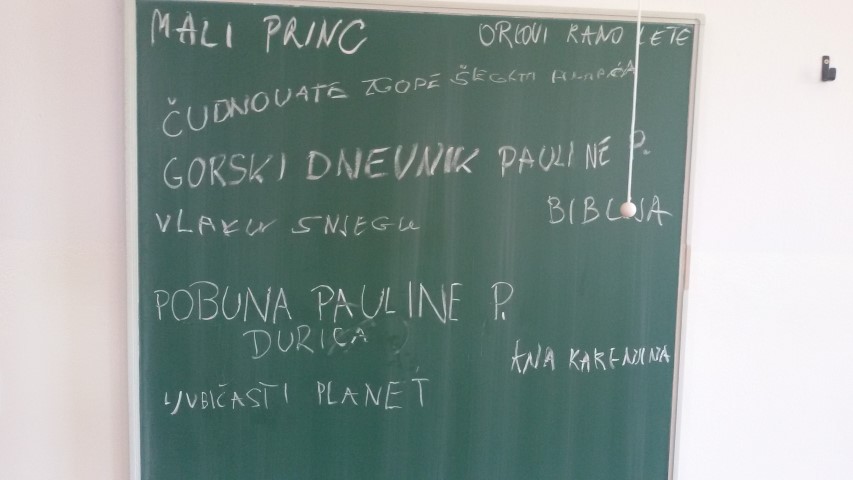 MALI PRINC
ORLOVI RANO LETE
ČUDNOVATE ZGODE ŠEGRTA HLAPIĆA
GORSKI DNEVNIK PAULINE P.
VLAK U SNIJEGU
BIBLIJA
POBUNA PAULINE P.
DURICA
ANA KARENJINA
LJUBIČASTI PLANET